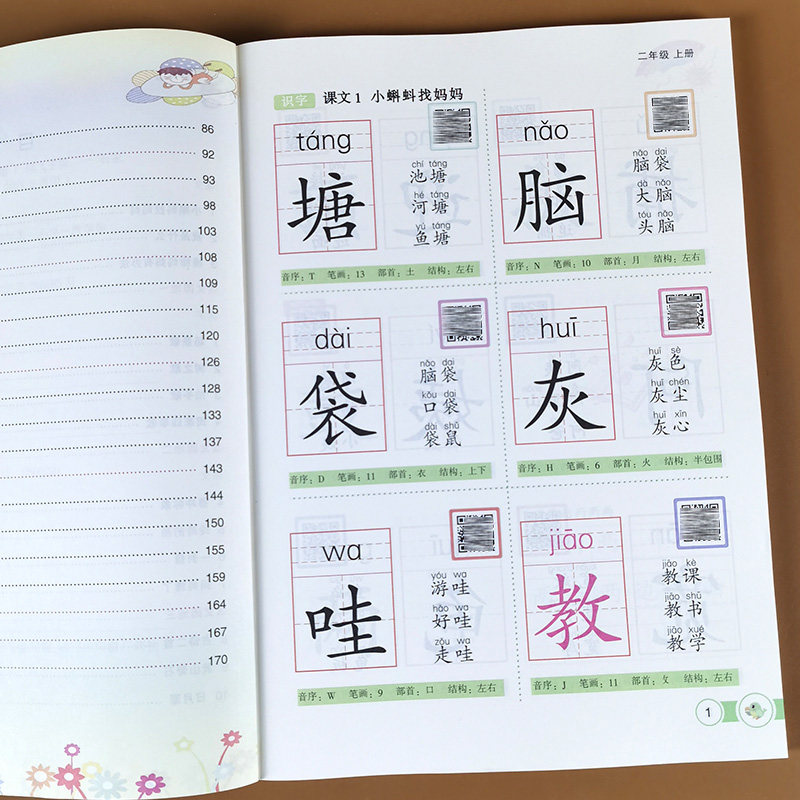 86
92
93
98
103
108
109
115
120
126
128
133
137
143
144
150
155
159
164
167
170
二年级 上册
识字 课文1 小蝌蚪找妈妈
táng
塘
chí táng
池塘
hé táng
河塘
yú táng
鱼塘
音序：T 笔画：13 部首：土 结构：左右
nǎo
脑
nǎo dai
脑袋
dà nǎo
大脑
tóu nǎo
头脑
音序：N 笔画：10 部首：月 结构：左右
dài
袋
nǎo dai
脑袋
kǒu dai
口袋
dài shǔ
袋鼠
音序：D 笔画：11 部首：衣 结构：上下
huī
灰
huī sè
灰色
huī chén
灰尘
huī xīn
灰心
音序：H 笔画：6 部首：火 结构：半包围
wa
哇
yóu wa
游哇
hǎo wa
好哇
zǒu wa
走哇
音序：W 笔画：9 部首：口 结构：左右
jiāo
教
jiāo kè
教课
jiāo shū
教书
jiāo xué
教学
音序：J 笔画：11 部首：攵 结构：左右
1